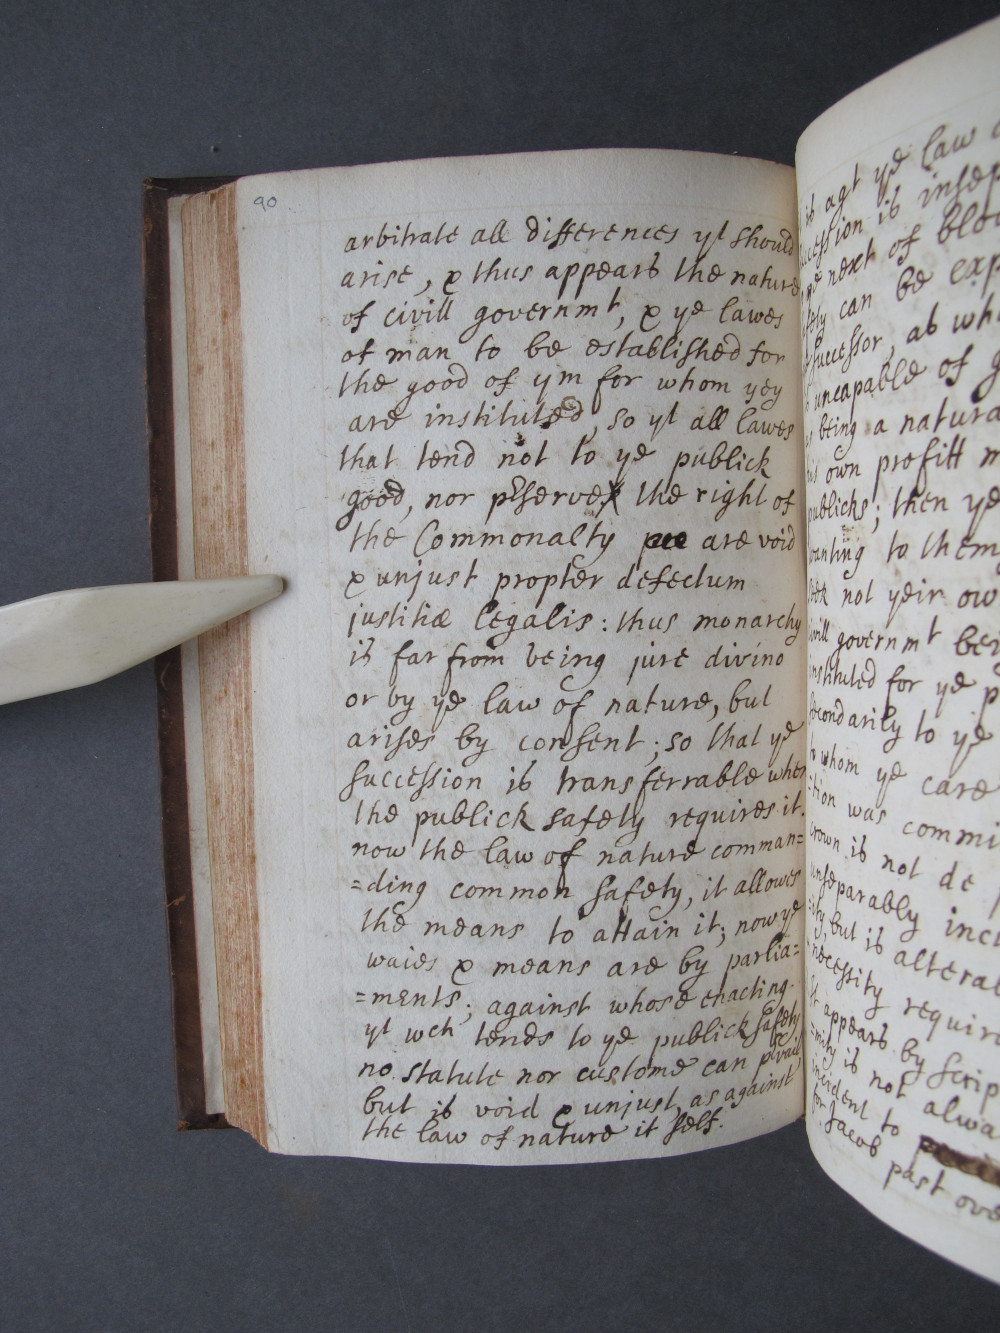 90
arbitrate all differences yt should
arise, & thus appears the nature
of civill governmt, & ye lawes
of man to be established for
the good of ym for whom yey
are instituted, so yt all lawes
that tend not to ye publick
good, nor pserve the right of
the Commonalty are void
& unjust propter defectum
justitiæ legalis: thus monarchy
is far from being jure divino
or by ye law of nature, but
arises by consent; so that ye
succession is transferrable when
the publick safety requires it.
now the law of nature comman=
=ding common safety, it allowes
the means to attain it; now ye
waies & means are by parlia=
=ments; against whose enacting
yt wch tends to ye publick safety
no statute nor custome can pvail,
but is void & unjust, as against
the law of nature it self.
is agt ye law
cession is insep
ye next of blo
can be exp
successor, as wh
uncapable of g
being a natura
own profitt m
publicks; then ye
wanting to them
seek not yeir ow
civill governmt bei
instituted for ye p
secondarily to ye
to whom ye care
tion was commi
crown is not de
unseparably inci
but is alterab
necessity require
it appears by Scrip
is not alwa
incident to
for Jacob past ove